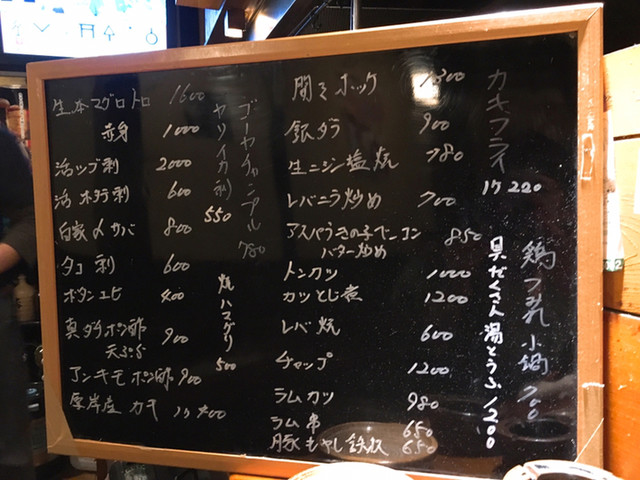 生本マグロトロ 1600
赤身 1000
活ツブ刺 2000
活ホタテ刺 600
自家〆サバ 800
タコ刺 600
ボタンエビ 400
真ダチポン酢 900
天ぷら
アンキモポン酢 900
厚岸産カキ 1ケ400
ゴーヤチャンプル 780
ヤリイカ刺 550
焼ハマグリ 500
開きホッケ 1300
銀ダラ 900
生ニシン塩焼 780
レバニラ炒め 700
アスパラきの子ベーコン 850
バター炒め
トンカツ 1000
カツとじ煮 1200
レバ焼 600
チャップ 1200
ラムカツ 980
ラム串 650
豚もやし鉄板 650
カキフライ 1ケ220
具だくさん湯とうふ 1200
鶏つみれ小鍋 700